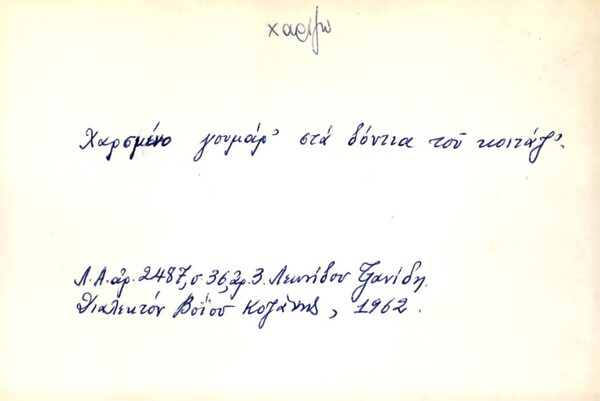 χαρίζω
Χαρσμένο γουμάρ' στά δόντια τοῦ κοιτάζ'.
Λ.Α. ἀρ. 2487, σ. 36, ἀρ. 3. Λεωνίδου Τζανίδη.
Διαλεκτόν Βοΐου Κοζάνης, 1962.